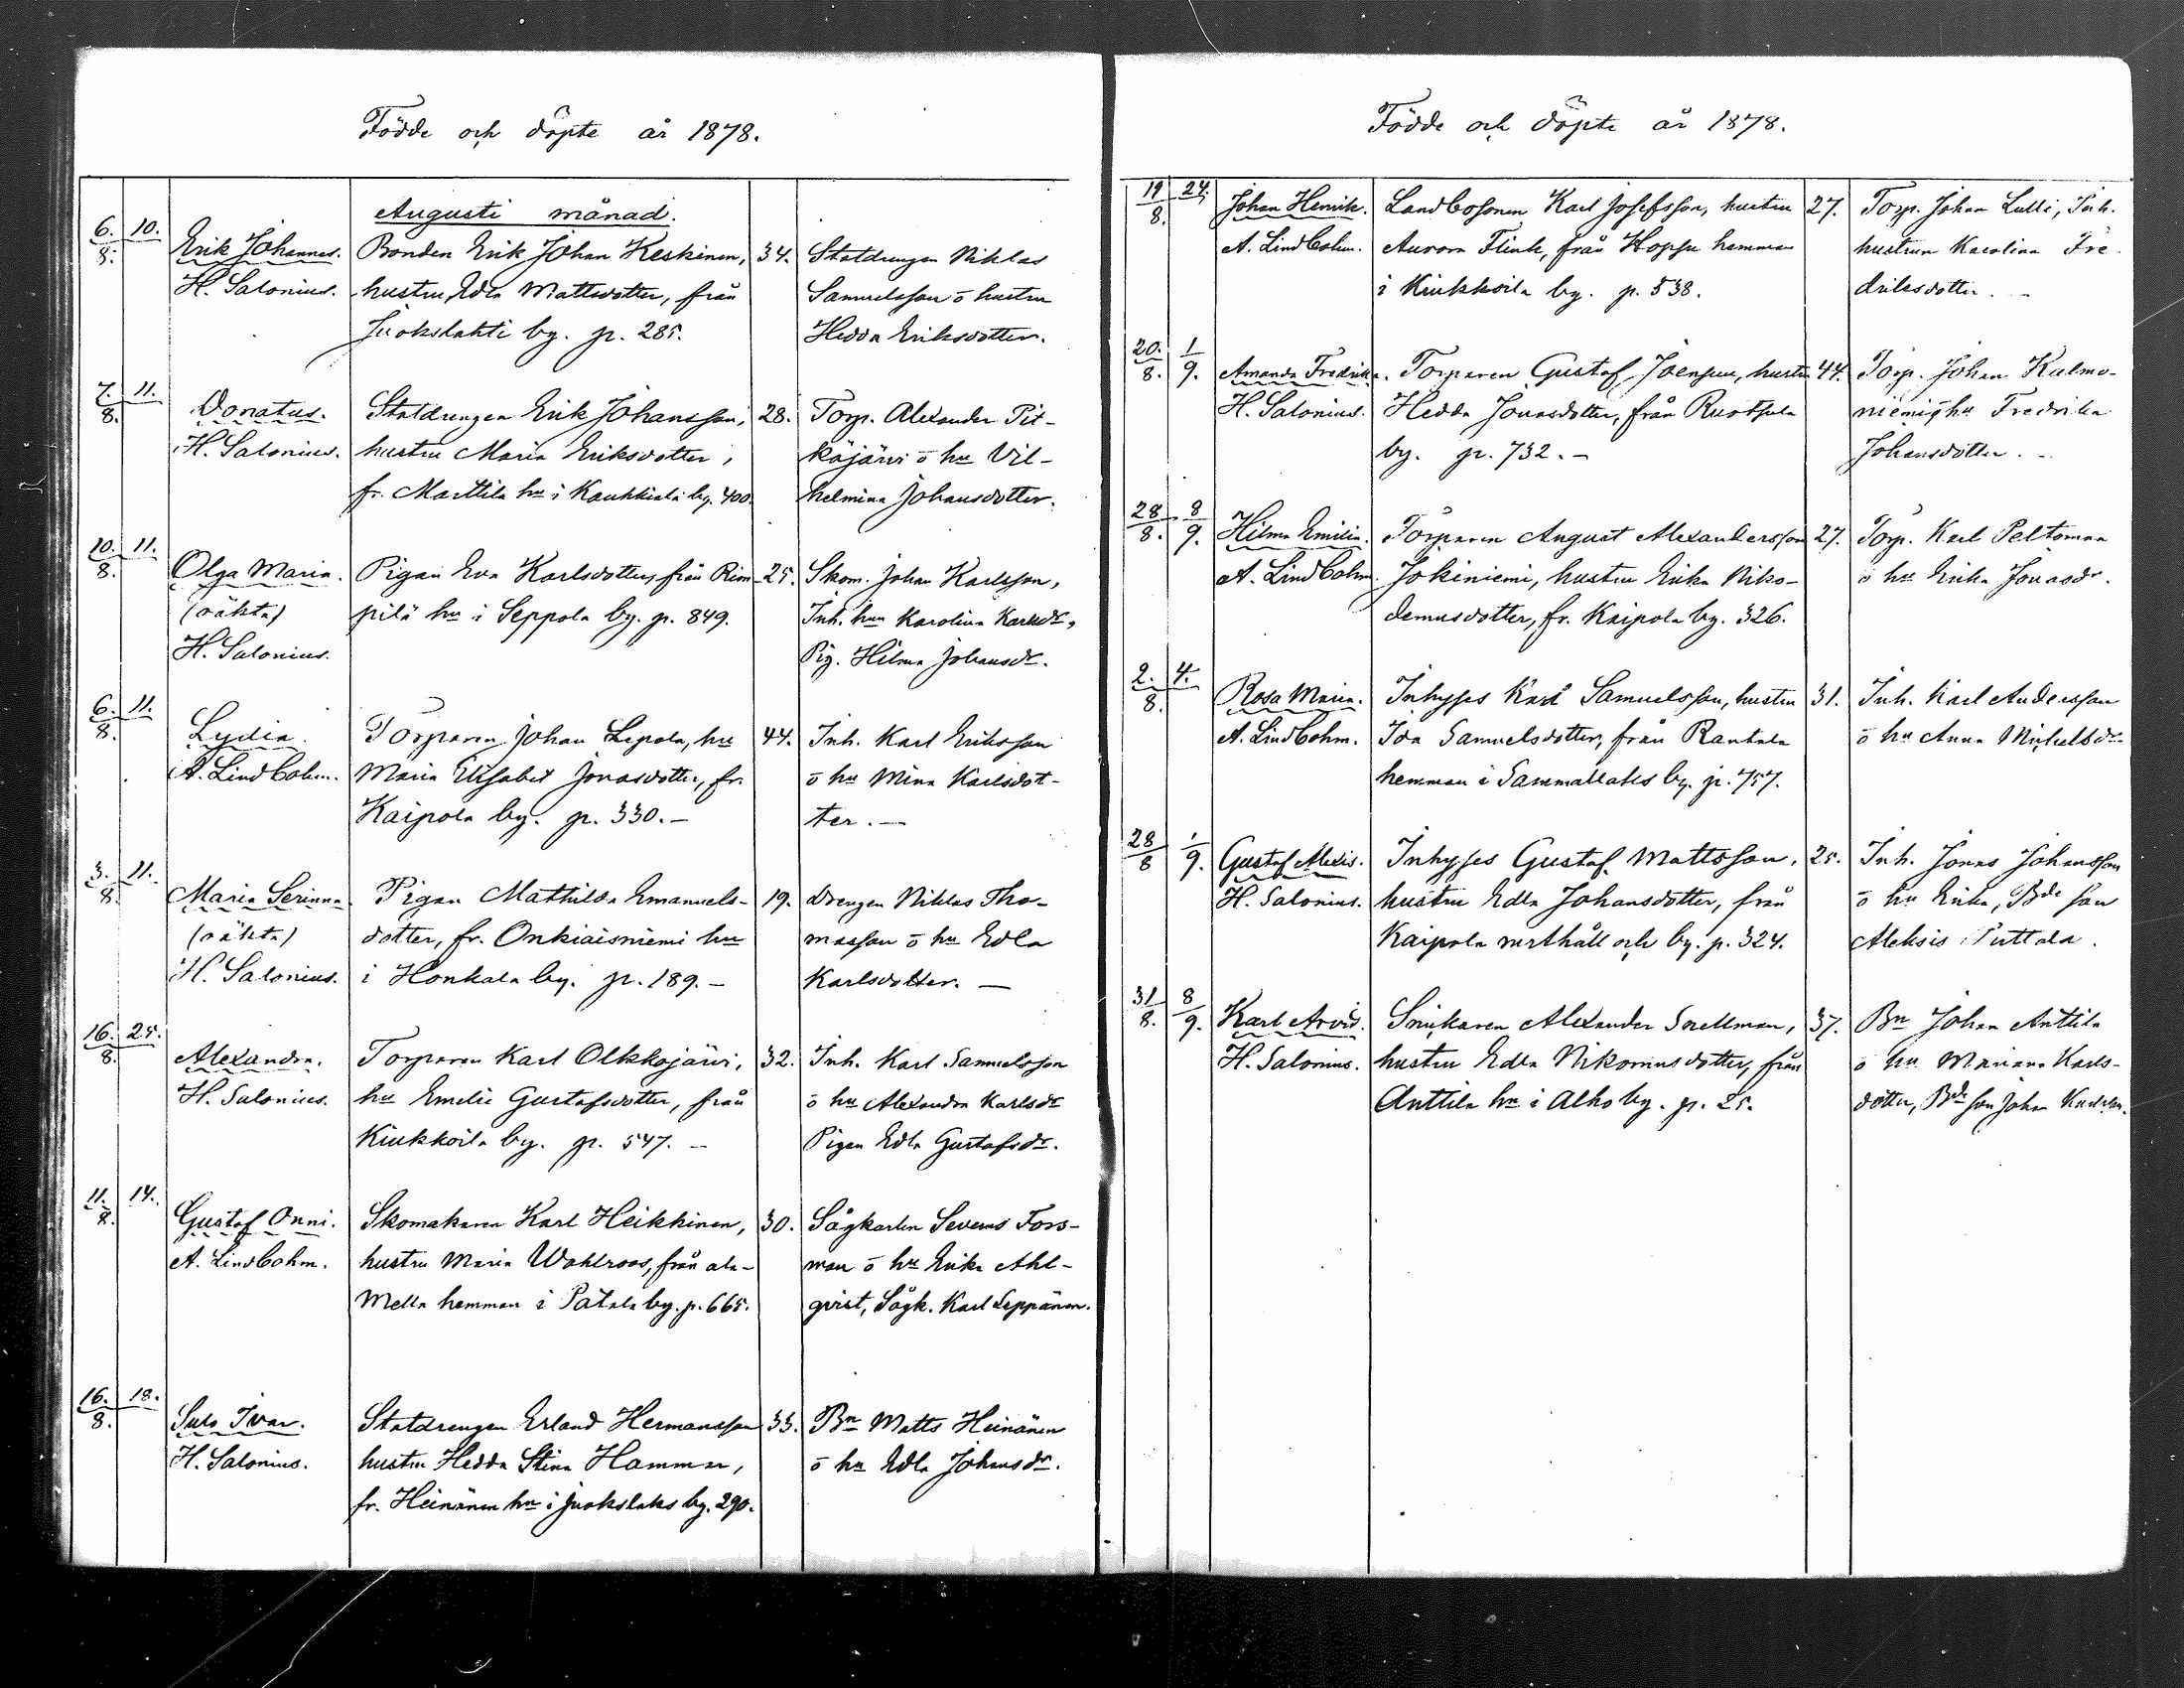 Födde och döpte år 1878.
Augusti månad.
6. 10.
8.
Erik Johannes. Bonden Erik Johan Keskinen, 34. Statdrengen Niklas
H. Salonius. hustru Edla Mattsdotter, från Samuelsson o hustru
Juokslahti by. p. 285. Hedda Eriksdotter.
7. 11.
8.
Donatus. Statdrengen Erik Johansson, 28. Torp. Alexander Pit-
H. Salonius. hustru Maria Eriksdotter, käjärvi o hu Vil-
fr. Marttila hn i Kaukkiala by. 400. helmina Johansdotter.
10. 11.
8.
Olga Maria. Pigan Eva Karlsdotter, från Rim- 25. Skom. Johan Karlsson,
(oäkta) pilä hn i Seppola by. p. 849. Inh. hun Karolina Karlsdr,
H. Salonius. Pig. Hilma Johansdr.
6. 11.
8.
Lydia. Torparen Johan Lepola, hu 44. Inh. Karl Eriksson
A. Lindbohm. Maria Elisabet Jonasdotter, fr. o hu Mina Karlsdot-
Kaipola by. p. 330. – ter. –
3. 11.
8.
Maria Serinna Pigan Mathilda Emanuels- 19. Drengen Niklas Tho-
(oäkta) dotter, fr. Onkiaisniemi hn masson o hu Edla
H. Salonius. i Honkala by. p. 189. – Karlsdotter. –
16. 25.
8.
Alexandra. Torparen Karl Olkkojärvi, 32. Inh. Karl Samuelsson
H. Salonius. hu Emelie Gustafsdotter, från o hu Alexandra Karlsdr
Kiukkoila by. p. 547. – Pigan Edla Gustafsdr.
11. 14.
8.
Gustaf Onni. Skomakaren Karl Heikkinen, 30. Sågkarlen Severus Fors-
A. Lindbohm. hustru Maria Wahlroos, från ala- man o hu Erika Ahl-
Mella hemman i Patala by. p. 665. qvist, Sågk. Karl Leppänen.
16. 18.
8.
Sulo Ivar. Statdrengen Erland Hermansson 33. Bn Matts Heinänen
H. Salonius. hustru Hedda Stina Hammar, o hu Edla Johansdr.
fr. Heinänen hn i Juokslaks by. 290.
Födde och döpte år 1878.
19 24.
8.
Johan Henrik. Landbosonen Karl Josefsson, hustru 27. Torp. Johan Lulli, Inh.
A. Lindbohm. Aurora Flink, från Hopsu hemman hustrun Karolina Fre-
i Kiukkoila by. p. 538. driksdotter. –
20. 1
8. 9.
Amanda Fredrika. Torparen Gustaf Joensuu, hustru 44. Torp. Johan Kalmo-
H. Salonius. Hedda Jonasdotter, från Ruotsula niemi o hu Fredrika
by. p. 732. – Johansdotter. –
28 8
8. 9.
Hilma Emilia. Torparen August Alexandersson 27. Torp. Karl Peltomaa
A. Lindbohm. Jokiniemi, hustru Erika Niko- o hu Erika Jonasdr.
demusdotter, fr. Kaipola by. 326.
2. 4.
8.
Rosa Maria. Inhyses Karl Samuelsson, hustru 31. Inh. Karl Andersson
A. Lindbohm. Ida Samuelsdotter, från Rantala o hu Anna Mickelsdr
hemman i Sammallaks by. p. 757.
28 1
8 9.
Gustaf Alexis. Inhyses Gustaf Mattsson, 25. Inh. Jonas Johansson
H. Salonius. hustru Edla Johansdotter, från o hu Erika, Bde son
Kaipola rusthåll och by. p. 324. Aleksis Puttala.
31 8
8. 9.
Karl Arvid. Snickaren Alexander Snellman, 37. Bn Johan Anttila
H. Salonius. hustru Edla Nikomusdotter, från o hu Mariana Karls-
Anttila hn i Alho by. p. 25. dotter, Bde son Johan